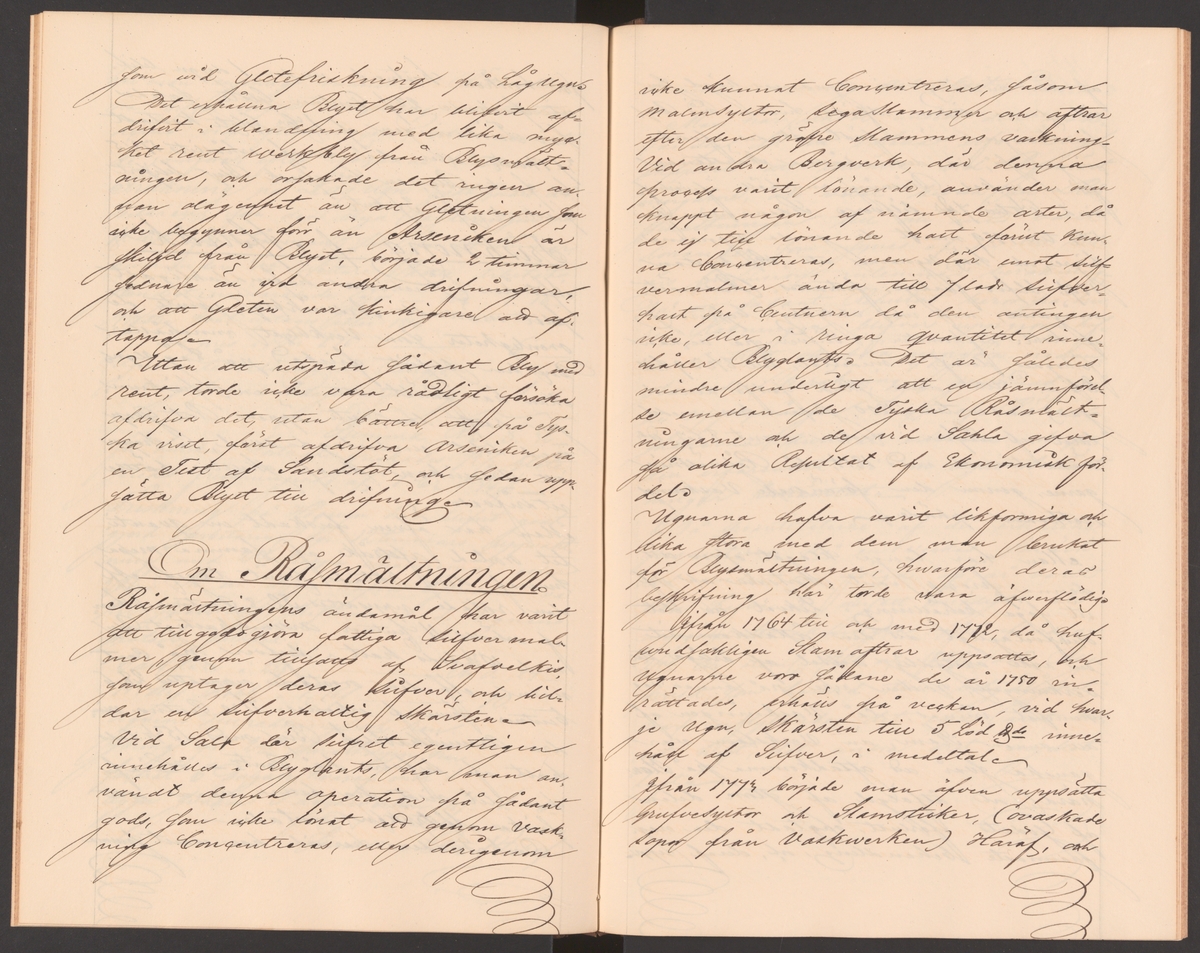 som wid Gletefriskning på LågUgn.
Det erhållna Blyet har blifvit af-
drifvit i blandning med lika myc-
ket rent Werkbly från Blysmält-
ningen, och orsakade det ingen an-
nan olägenhet än att Gletningen som
icke begynner förr än Arseniken är
skild från Blyet, började 2 timmar
sednare än vid andra drifningar,
och att Gleten var kinkigare att af-
tappa.
Utan att utspäda sådant Bly med
rent, torde icke vara rådligt försöka
afdrifva det, utan bättre att på Tys-
ka viset, först afdrifva Arseniken på
en Test af Sandstöt, och sedan upp-
sätta Blyet till drifning.
Om Råsmältningen.
Råsmältningens ändamål har varit
att tillgodogöra fattiga silfvermal-
mer, genom tillsatts af Svafvelkis,
som uptager deras silfver, och bil-
dar en silfverhaltig skärsten.
Vid Sala där silfret egentligen
innehålles i Blyglants, har man an-
vändt denna operation på sådant
gods, som icke lönat att genom vask-
ning Concentreras, eller derigenom
icke kunnat Concentreras, såsom
Malmsyltor, SegaStammar och aftrar
efter den gröfre Stammens vaskning.
Vid andra Bergverk, där denna
process varit lönande, använder man
knappt någon af nämnde arter, då
de ej till lönande halt sämt kun-
na Concentreras, men där emot silf-
vermalmer ända till 7 lods silfver-
halt på Centnern då den antingen
icke, eller i ringa qvantitet inne-
håller Blyglants. Det är således
mindre underligt att en jämnförel-
se emellan de Tyska Råsmält-
ningarne och de vid Sahla gifva
så olika Resultat af Ekonomisk för-
del.
Ugnarna hafva varit likformiga och
lika stora med dem man brukat
för Blysmältningen, hvarföre deras
beskrifning här torde vara öfwerflödig.
Ifrån 1764 till och med 1772, då huf-
vudsakligen Stamaftrar uppsattes, och
Ugnarne voro sådane de år 1750 in-
rättades, erhölls på veckan, vid hvar-
je Ugn, Skärsten till 5 Löd inne-
hålt af Silfver, i medeltal.
Ifrån 1773 började man äfven uppsätta
Grufvesyltor och Stamstriker, (ovaskade
sopor från Vaskwerken) Häraf, och